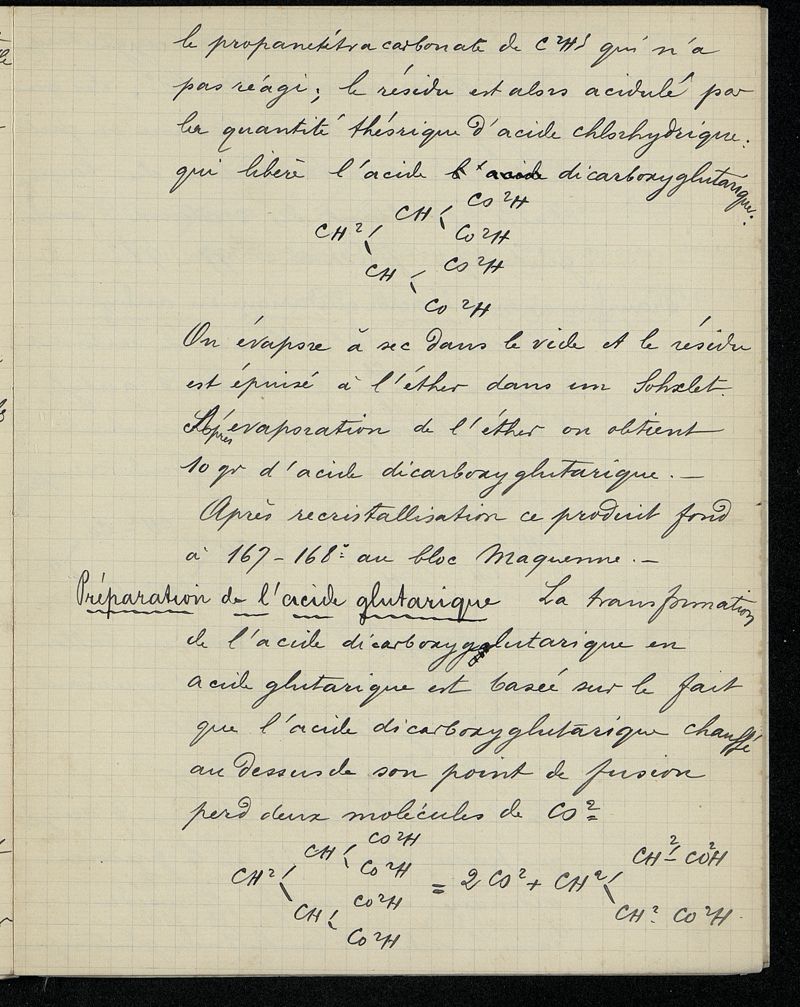 le propanetétracarbonate de C²H⁵ qui n'a
pas réagi; le résidu est alors acidulé par
la quantité théorique d'acide chlorhydrique.
qui libère l'acide dicarboxyglutarique.
CH² CH CO²H
CO²H
CH CO²H
CO²H
On évapore à sec dans le vide et le résidu
est épuisé à l'éther dans un Sohxlet.
Après évaporation de l'éther on obtient
10 gr d'acide dicarboxyglutarique. —
Après recristallisation ce produit fond
à 167-168° au bloc Maquenne. —
Préparation de l'acide glutarique La transformation
de l'acide dicarboxyglutarique en
acide glutarique est basée sur le fait
que l'acide dicarboxyglutarique chauffé
au dessus de son point de fusion
perd deux molécules de CO²
CH² CH CO²H CO²H CH CO²H CO²H = 2 CO² + CH² CH² - CO²H CH² CO²H